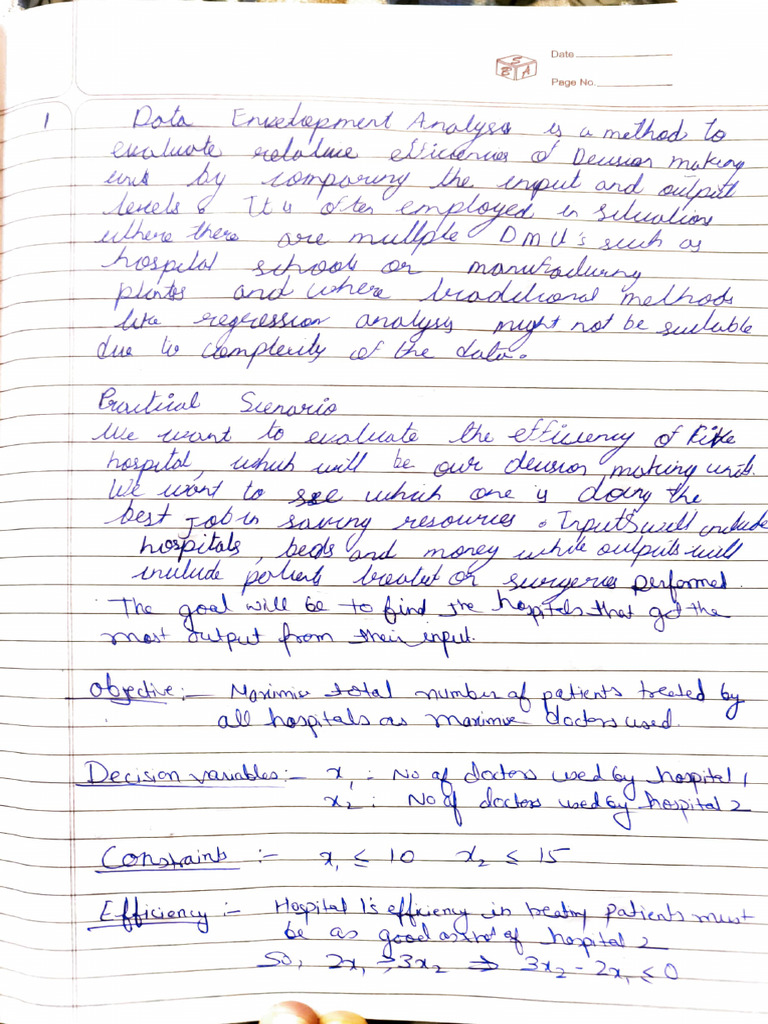 S
B A
Date
Page No.
1
Data Envelopment Analysis is a method to
evaluate relative efficiencies of Decision making
units by comparing the input and output
levels. It is often employed in situations
where there are multiple DMU's such as
hospital schools or manufacturing
plants and where traditional methods
like regression analysis might not be suitable
due to complexity of the data.
Practical Scenario
We want to evaluate the efficiency of Five
hospital, which will be our decision making units.
We want to see which one is doing the
best job in saving resources. Inputs will include
hospitals, beds and money while outputs will
include patients treated or surgeries performed.
The goal will be to find the hospitals that get the
most output from their input.
Objective:- Maximize total number of patients treated by
all hospitals as maximize doctors used.
Decision variables:- x₁: No of doctors used by hospital 1
x₂: No of doctors used by hospital 2
Constraints :- x₁ ≤ 10 x₂ ≤ 15
Efficiency:- Hospital 1's efficiency in treating patients must
be as good as that of hospital 2
So, 2x₁ ≥ 3x₂ ⇒ 3x₂ - 2x₁ ≤ 0